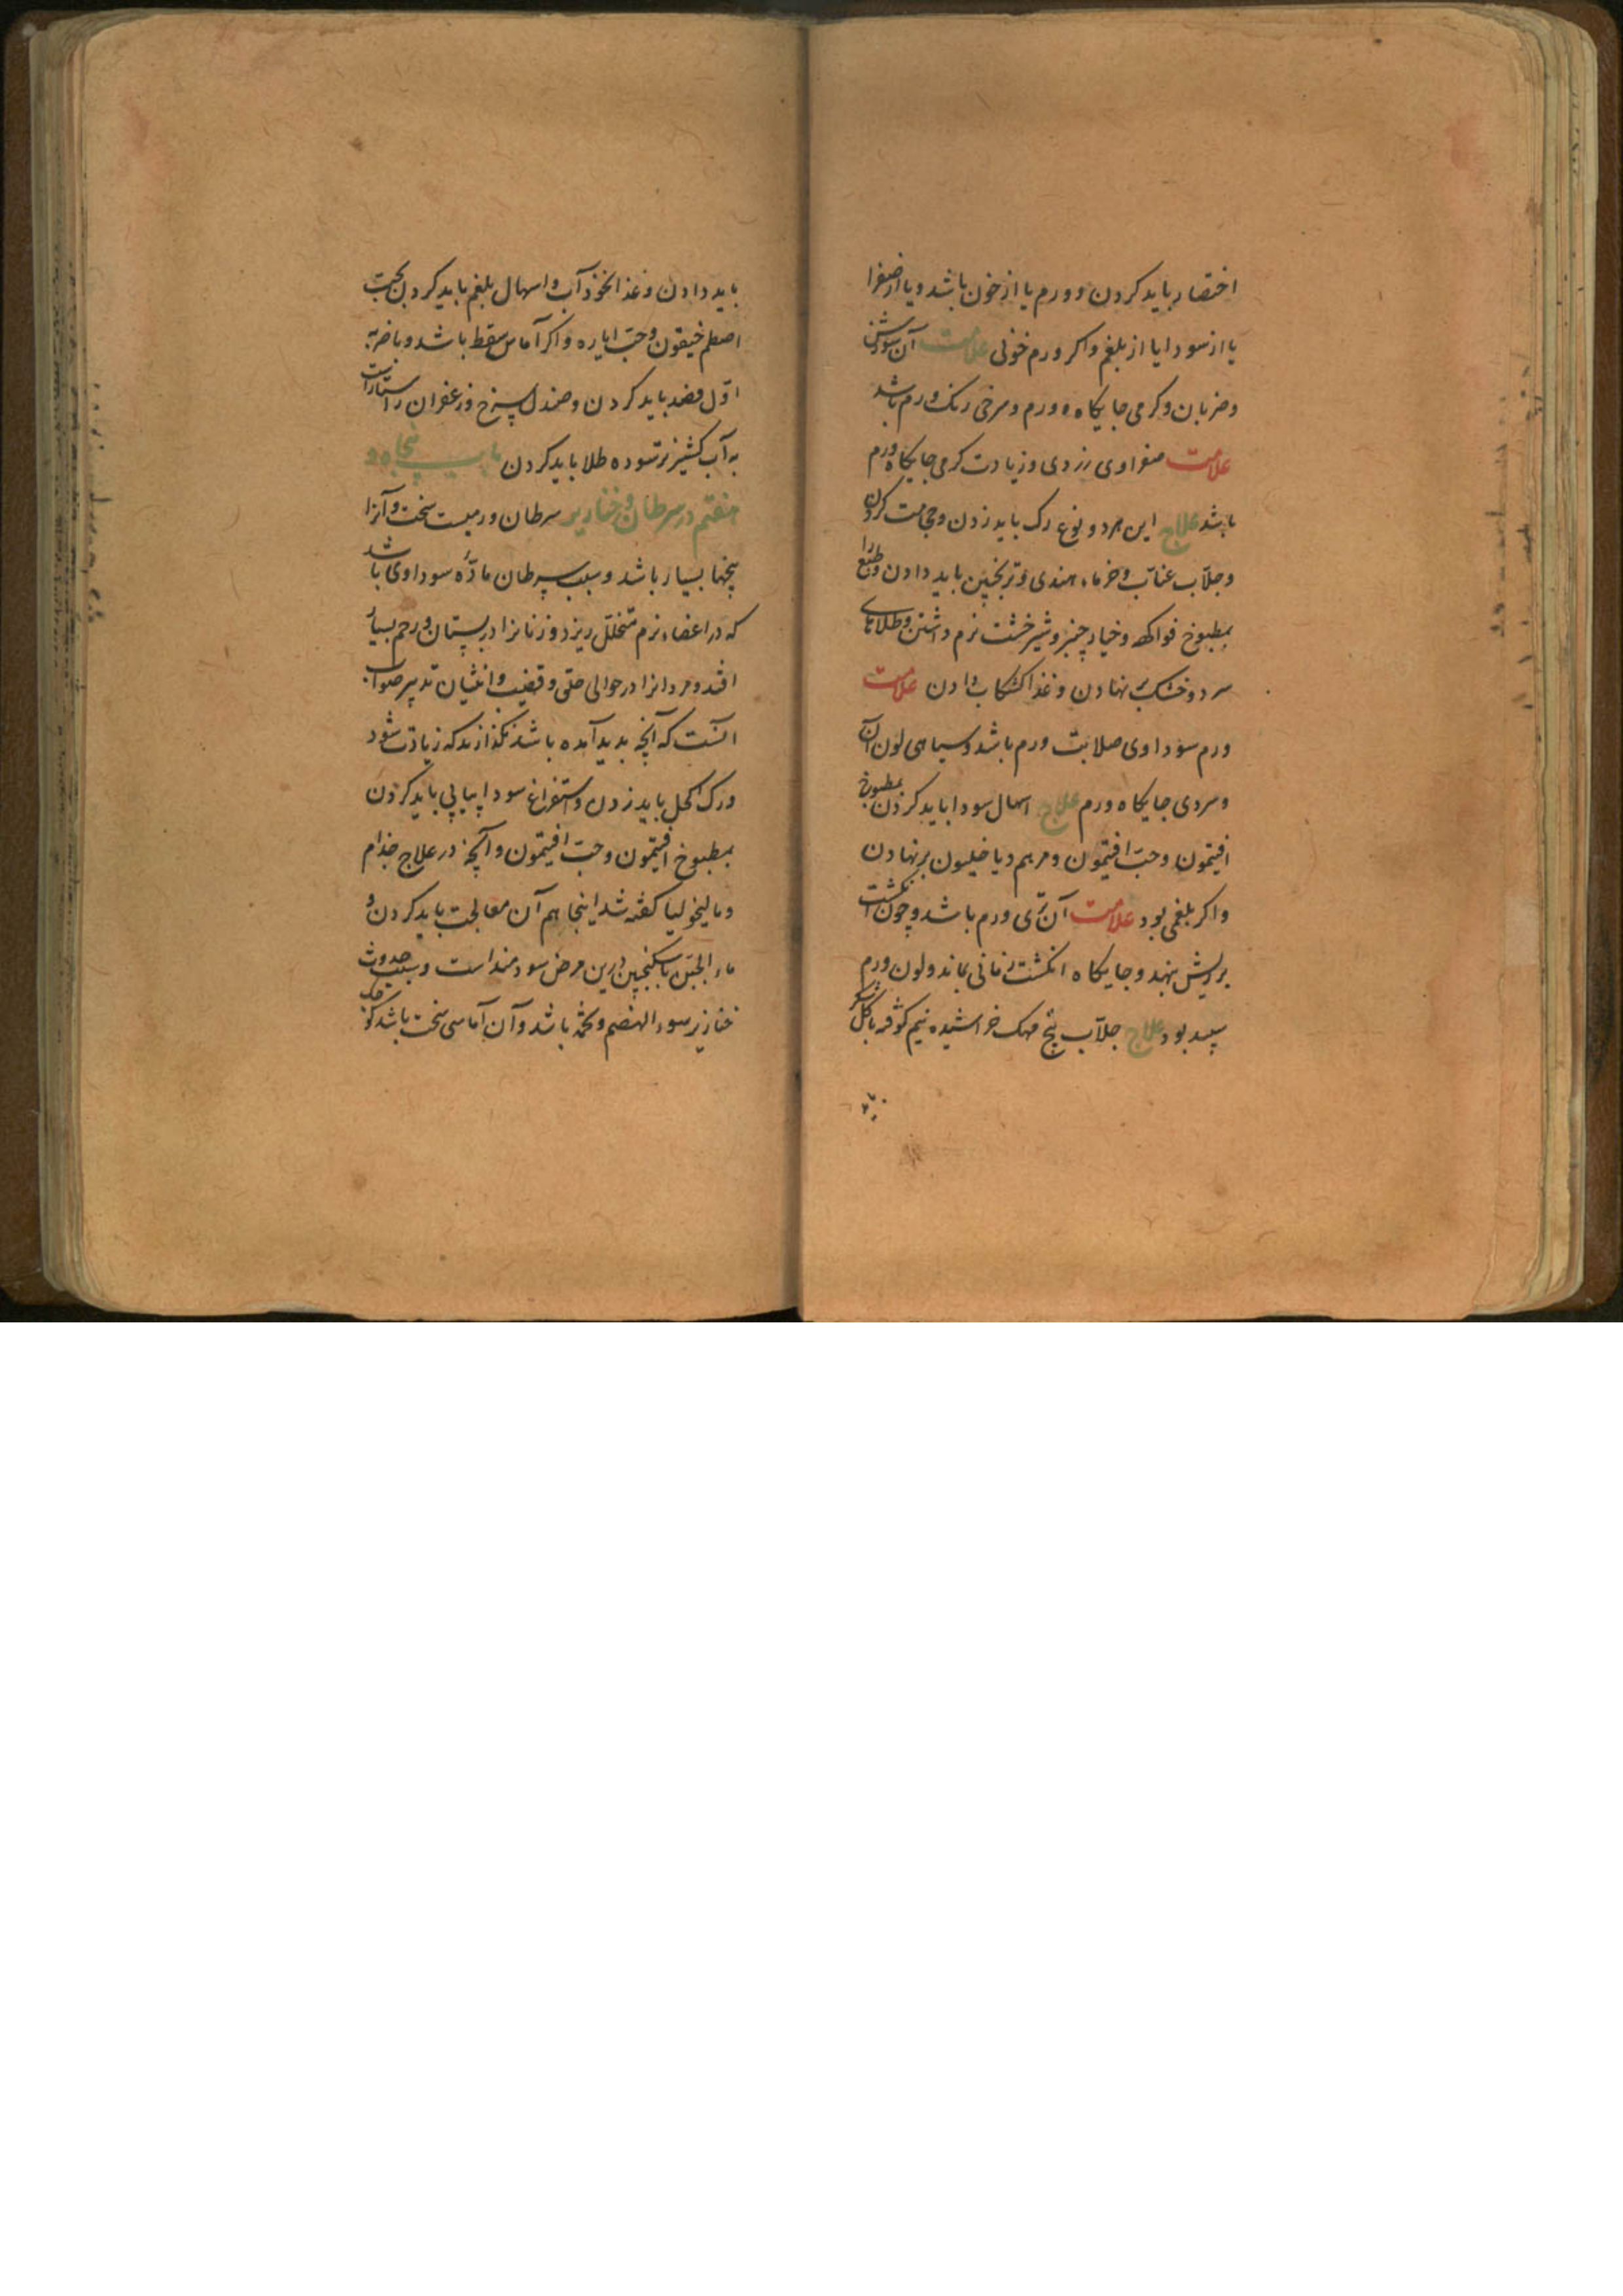 اختصار باید کردن و ورم یا از خون باشد و یا از صفرا
یا از سودا یا از بلغم و اکر ورم خونی علامت آن سوزش
و ضربان و کرمی جایکاه ورم و سرخی رنک ورم باشد
علامت صفراوی زردی و زیادت کرمی جایکاه ورم
باشد علاج این هر دو نوع رک باید زدن و حجامت کردن
و جلاب عناب و خرماء هندی و ترنجبین باید دادن و طبع را
بمطبوخ فواکه و خیار چنبر و شیر خشت نرم داشتن و طلاهای
سرد و خشک بر نهادن و غذا کشکاب دادن علامت
ورم سوداوی صلابت ورم باشد و سیاهی لون آن
و سردی جایکاه ورم علاج اسهال سودا باید کردن بمطبوخ
افتیمون و حب افتیمون و مرهم دیاخیلیون بر نهادن
و اکر بلغمی بود علامت آن نرمی ورم باشد و چون انکشت
برویش نهند و جایکاه انکشت زمانی بماند و لون ورم
سپید بود علاج جلاب بیخ مهک خراشیده نیم کوفته با کلشکر
باید دادن و غذا نخودآب و اسهال بلغم باید کردن بحب
اصطمخیقون و حب ایاره و اکر آماس سقط باشد و یا ضربه
اول فصد باید کردن و صندل سرخ و زعفران راستاراست
به آب کشنیز تر سوده طلا باید کردن باب پنجاه و
هفتم در سرطان و خنازیر سرطان ورمیست سخت و آنرا
بیخها بسیار باشد و سبب سرطان ماده سوداوی باشد
که در اعضاء نرم متخلل ریزد و زنانرا در پستان و رحم بسیار
افتد و مردانرا در حوالی حلق و قضیب و انثیان تدبیر صواب
آنست که آنچه بدید آمده باشد نکذارند که زیادت شود
و رک اکحل باید زدن و استفراغ سودا پیاپی باید کردن
بمطبوخ افتیمون و حب افتیمون و آنچه در علاج جذام
و مالیخولیا کفته شد اینجا هم آن معالجت باید کردن و
ماء الجبن با سکنجبین درین مرض سودمند است و سبب حدوث
خنازیر سوء الهضم و تخمه باشد و آن آماسی سخت باشد